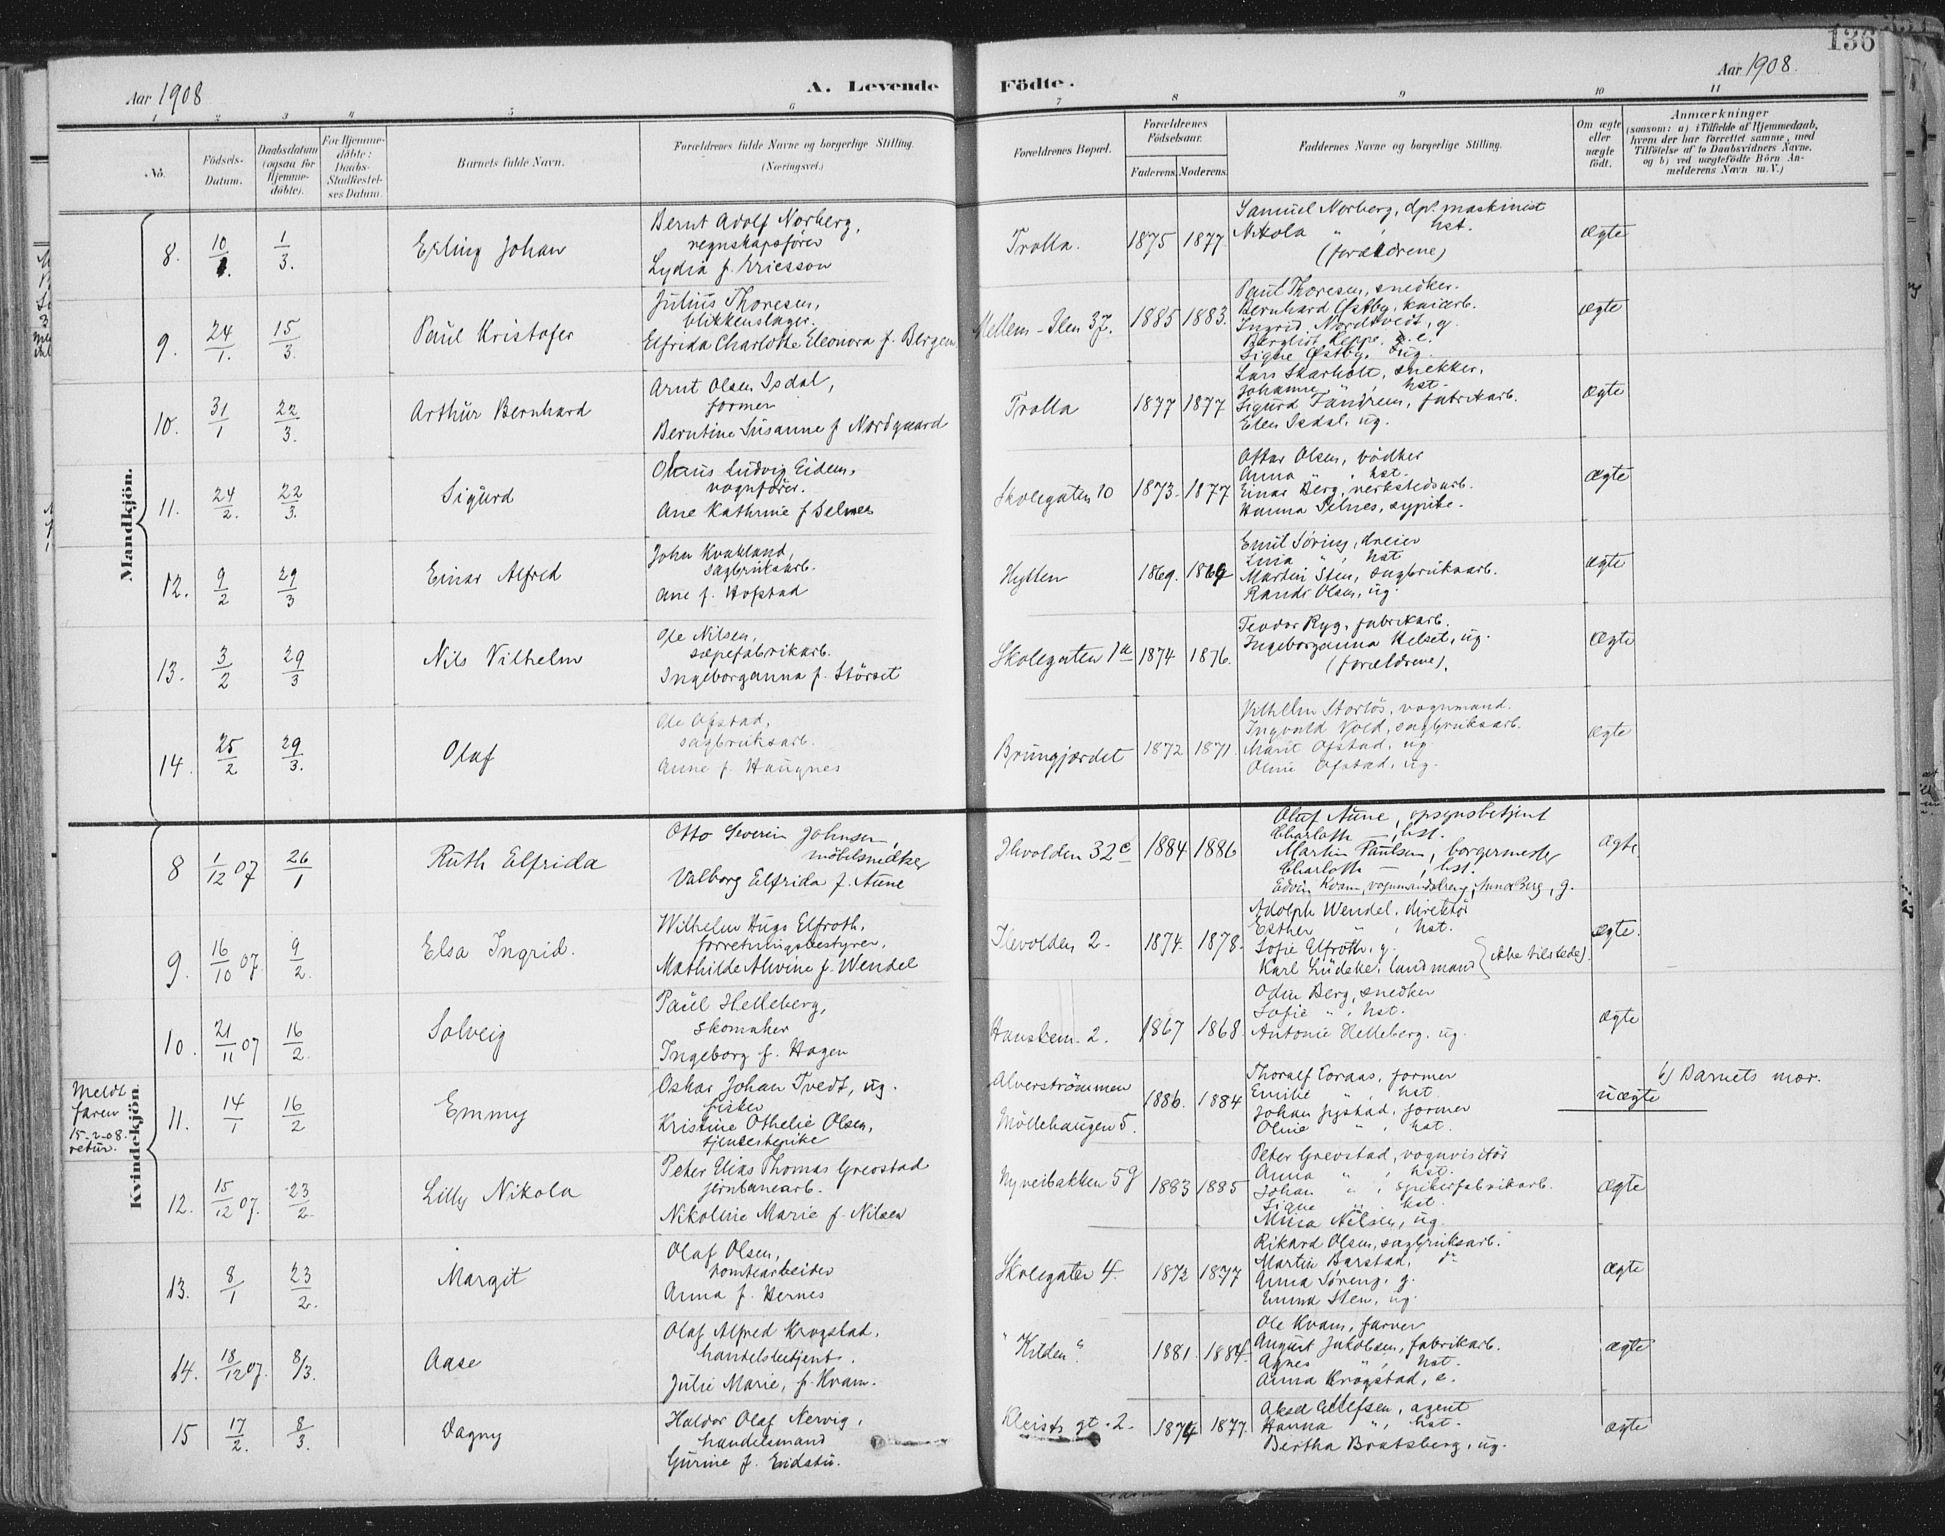 136
Aar 1908
A. Levende Födte.
Aar 1908.
1 2 3 4 5 6 7 8 9 10 11
No.
Födsels-Datum.
Daabsdatum (ogsaa for Hjemme-döbte).
For Hjemme-döbte: Daabs Stadfæstel-ses Datum.
Barnets fulde Navn.
Forældrenes fulde Navne og borgerlige Stilling. (Næringsvei.)
Forældrenes Bopæl.
Forældrenes Födselsaar.
Faderens. Moderens.
Faddernes Navne og borgerlige Stilling.
Om ægte eller uægte födt.
Anmærkninger
(saasom: a) i Tilfælde af Hjemmedaab, hvem der har forrettet samme, med Tilföielse af to Daabsvidners Navne, og b) ved uægtefödte Börn An-melderens Navn m. V.)
Mandkjön.
8. 10/1. 1/3. Erling Johan
Bernt Adolf Norberg,
regnskapsfører
Lydia f. Ericsson
Trolla. 1875 1877.
Samuel Norberg, dpl. maskinist
Nikola " , hst.
(forældrene)
ægte
9. 24/1. 15/3. Paul Kristofer
Julius Thoresen,
blikkenslager.
Elfrida Charlotte Eleonora f. Bergem
Mellem-Ilen 37. 1885 1883.
Paul Thoresen, snedker.
Bernhard Østby, kaiarb.
Ingrid Nordtvedt, g.
Bergliot Leppe,
Signe Østby, ug.
ægte
10. 31/1 22/3. Arthur Bernhard
Arnt Olsen Isdal,
former
Berntine Susanne f. Nordgaard
Trolla 1877 1877
Lars Skarholt, snekker,
Johanne " , hst.
Sigurd Tandrem, fabrikarb.
Elen Isdal, ug.
ægte
11. 24/2. 22/3. Sigurd
Olaus Ludvig Eidem,
vognfører.
Ane Kathrine f. Selnes
Skolegaten 10 1873. 1877
Ottar Olsen, bødker
Anna " , hst.
Einar Berg, verkstedsarb.
Hanna Selnes, sypike.
ægte
12. 9/2 29/3 Einar Alfred
John Kvakland,
sagbruksarb.
Ane f. Hofstad
Hytten 1869. 1869
Emil Søring, dreier
Lina " , hst
Martin Sten, sagbruksarb.
Randi Olsen, ug.
ægte
13. 3/2 29/3 Nils Vilhelm
Ole Nilsen,
sæpefabrikarb.
Ingeborganna f. Størset
Skolegaten 1a 1874 1876.
Teodor Ryg, fabrikarb.
Ingeborganna Helset, ug.
(forældrene).
ægte
14. 25/2 29/3. Olaf
Ole Ofstad,
sagbruksarb.
Anne f. Haugnes
Brungjærdet 1872 1871.
Vilhelm Storløs, vognmand.
Ingvald Vold, sagbruksarb.
Marit Ofstad, ug.
Oline Ofstad, ug.
ægte
Kvindekjön.
8 1/12 07 26/1 Ruth Elfrida
Otto Severin Johnsen,
møbelsnedker
Valborg Elfrida f. Aune
Ilevolden 32c 1884 1886
Oluf Aune, opsynsbetjent
Charlotte — , hst.
Martin Paulsen, borgermester
Charlotte — , hst.
Edvin Kvam, vognmandsdreng, Anna Berg, g.
ægte
9. 16/10 07. 9/2. Elsa Ingrid.
Wilhelm Hugo Elfroth,
forretningsbestyrer.
Mathilde Alvine f. Wendel
Ilevolden 2. 1874. 1878.
Adolph Wendel, direktør
Esther " , hst.
Sofie Elfroth, g.
Karl Lüdeke, landmand (ikke tilstede).
ægte.
10. 21/11 07 16/2. Solveig
Paul Helleberg,
skomaker
Ingeborg f. Hagen
Hanskem. 2. 1867 1868.
Odin Berg, snedker
Sofie " , hst.
Antonie Helleberg, ug.
ægte
Meldt
faren
15-2-08.
retur.
11. 14/1 16/2 Emmy
Oskar Johan Tvedt, ug.
fisker
Kristine Othelie Olsen,
tjenestepike
Alverstrømmen
Möllehaugen 5. 1886. 1884
Thoralf Coraas, former
Emilie " , hst
Johan Jystad, former
Oline " , hst.
uægte
b) Barnets mor.
12. 15/12 07. 23/2. Lilly Nikola
Peter Elias Thomas Grevstad
jernbanearb.
Nikoline Marie f. Nilsen
Nyveibakken 5g 1883 1885
Peter Grevstad, vognvisitør
Anna " , hst.
Johan " , spikerfabrikarb.
Signe " , hst.
Mina Nilsen, ug.
ægte
13. 8/1 23/2. Margit
Olaf Olsen,
tomtearbeider
Anna f. Hernes
Skolegaten 4. 1872 1877
Rikard Olsen, sagbruksarb.
Martin Barstad, do
Anna Søreng, g.
Emma Sten, ug.
ægte
14. 18/12 07. 8/3. Aase
Olaf Alfred Krogstad,
handelsbetjent.
Julie Marie, f. Kvam.
"Kilden". 1881. 1884.
Ole Kvam, farver
August Jakobsen, fabrikarb.
Agnes " , hst.
Anna Krogstad, e.
ægte
15 17/2. 8/3. Dagny
Haldor Olaf Nervig,
handelsmand
Gurine f. Eidstu.
Kleists gt. 2. 1874 1877.
Aksel Ellefsen, agent
Hanna " , hst.
Bertha Bratsberg, ug.
ægte